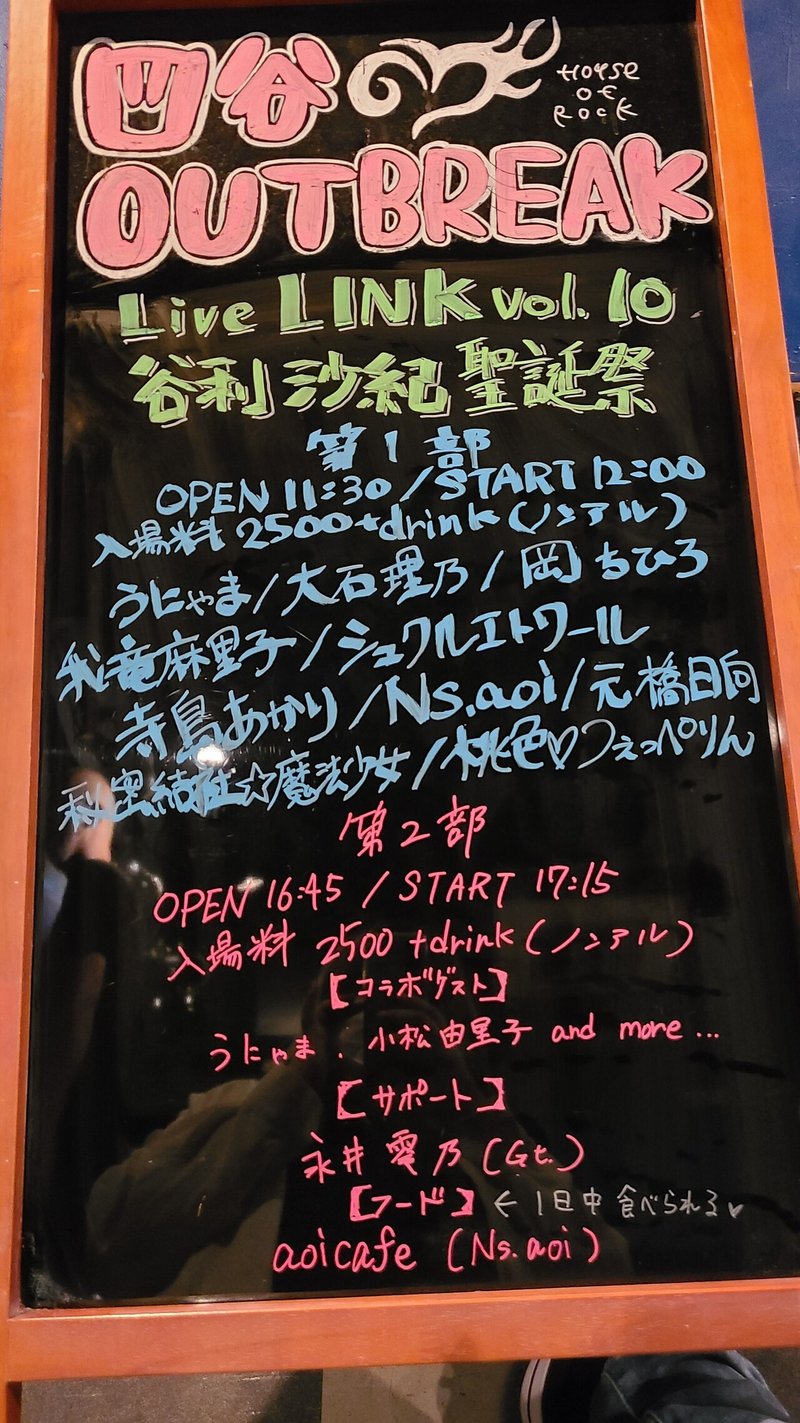 四谷
HOUSE
OF
ROCK
OUTBREAK
Live LINK vol.10
谷利沙紀 聖誕祭
第1部
OPEN 11:30 / START 12:00
入場料 2500+drink(ノンアル)
うにゃま/大石理乃/岡ちひろ
麻里子/シュクルエトワール
寺島あかり/Ns.aoi/元橋日向
秘密結社☆魔法少女/桃色♡つぇっぺりん
第2部
OPEN 16:45 / START 17:15
入場料 2500 +drink(ノンアル)
【コラボゲスト】
うにゃま、小松由里子 and more...
【サポート】
永井愛乃(Gt.)
【フード】←1日中食べられる♥
aoicafe (Ns.aoi)